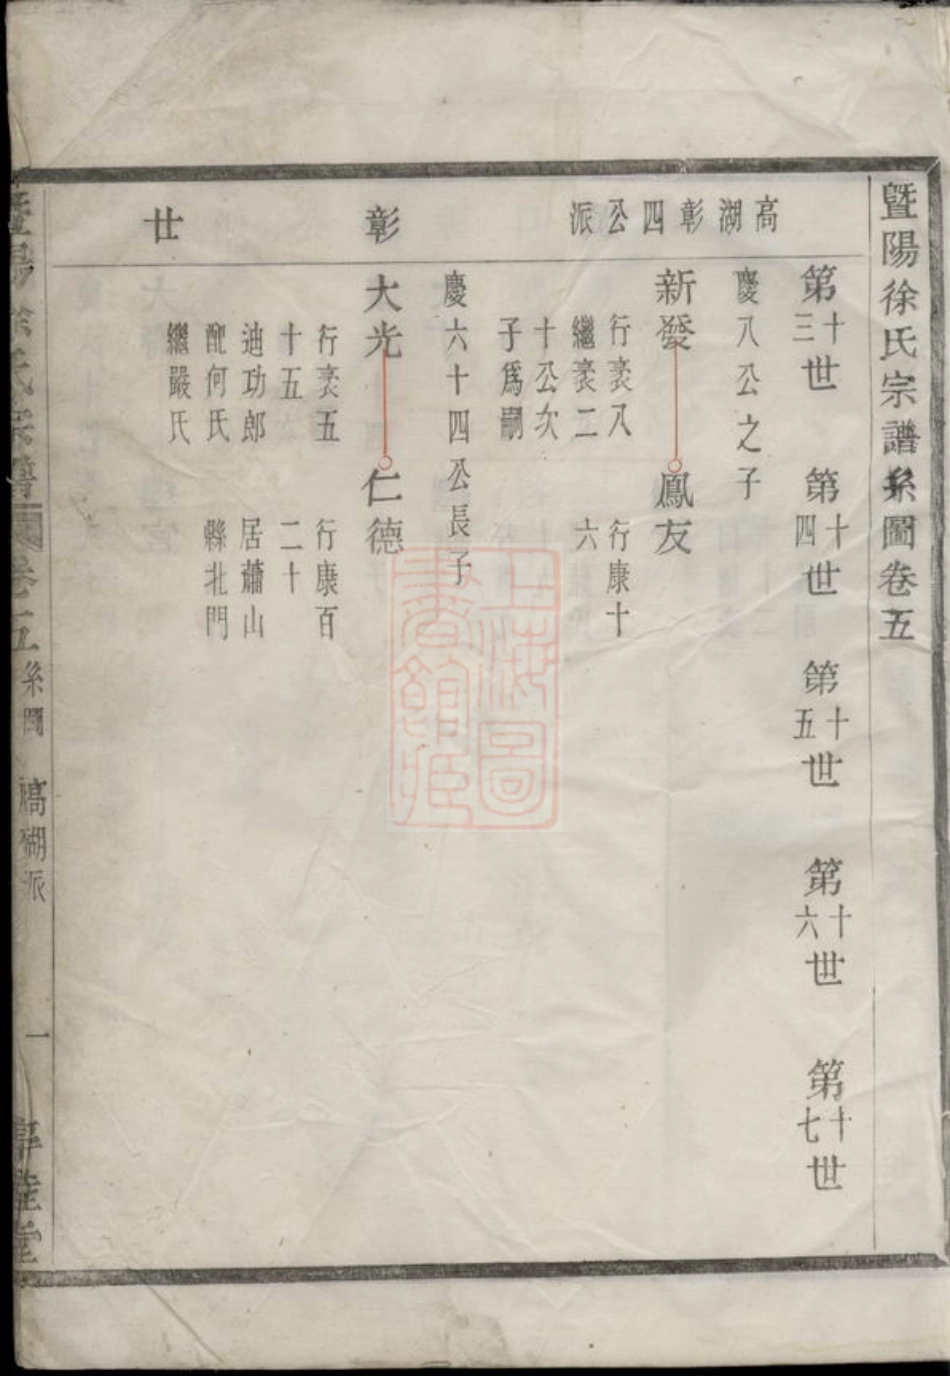 暨陽徐氏宗譜系圖卷五
第十三世
第十四世
第十五世
第十六世
第十七世
高湖彰四公派
慶八公之子
新發
行袤八
繼袤二
十公次
子爲嗣
鳳友
行康十
六
慶六十四公長子
彰
大光
行袤五
十五
迪功郎
配何氏
繼嚴氏
仁德
行康百
二十
居蕭山
縣北門
廿
暨陽徐氏宗譜
卷五
系圖
高湖派
一
惇睦堂
上海圖
書館藏